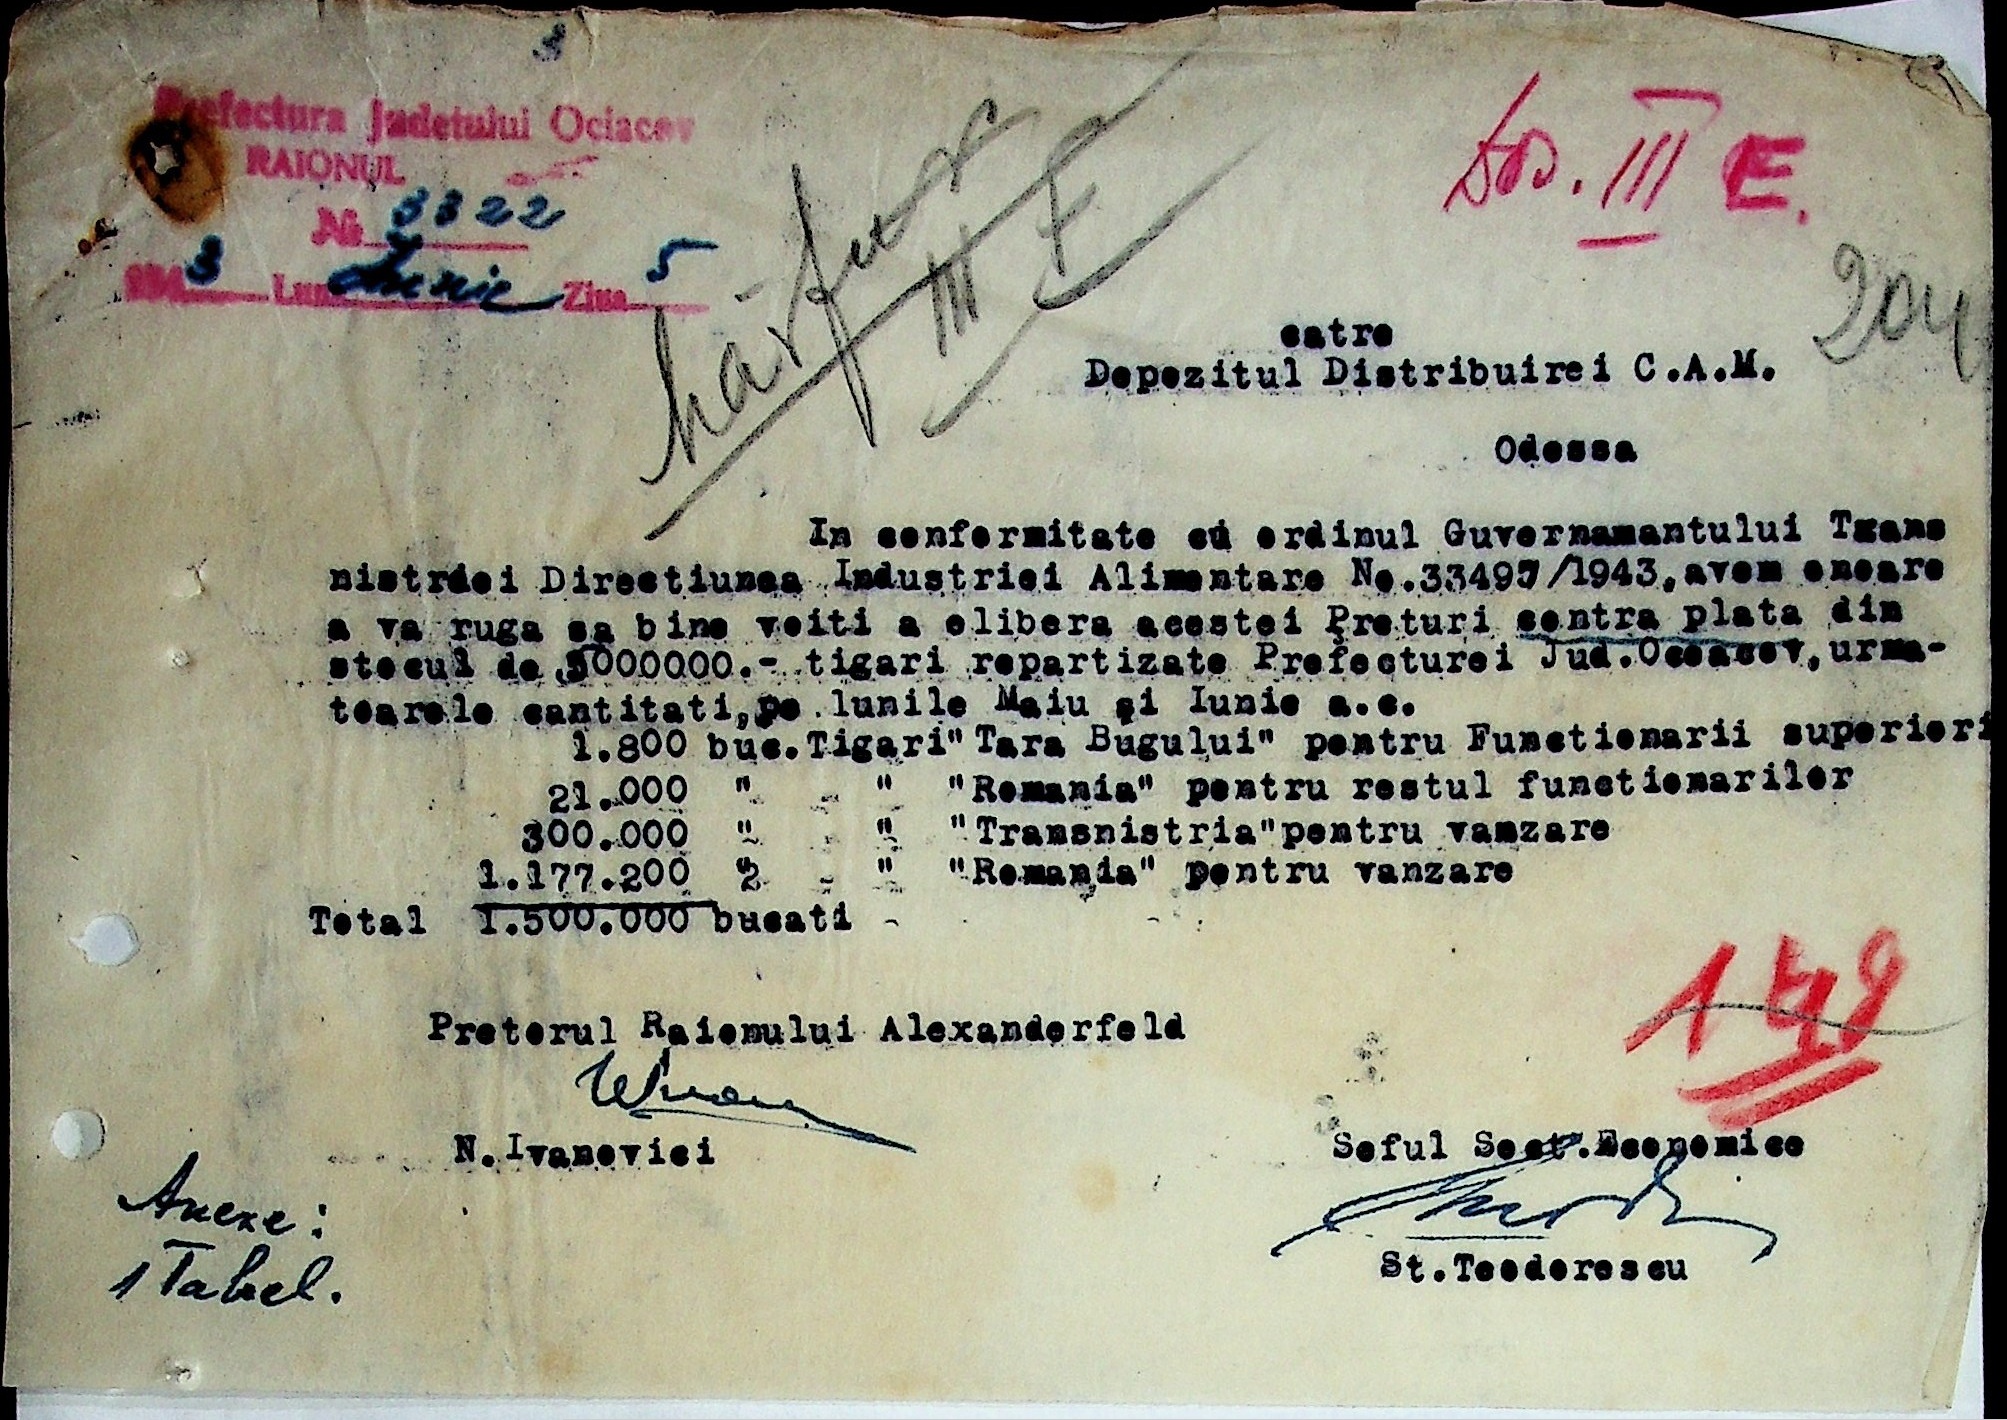 3
Prefectura Judetului Ociacov
RAIONUL
№ 3322
1943 Luna Iunie Ziua 5
III E
Do. III E.
204
catre
Depezitul Distribuirei C.A.M.
Odessa
In conformitate cu ordinul Guvernamantului Trans
nistriei Directiunea Industriei Alimentare No.33497/1943, avem onoare
a va ruga sa bine voiti a elibera acestei Preturi contra plata din
stocul de 5000000.- tigari repartizate Prefecturei Jud.Oceacov, urma-
toarele cantitati, pe lunile Maiu și Iunie a.c.
1.800 buc. Tigari "Tara Bugului" pentru Functionarii superiori
21.000 " " "Romania" pentru restul functionarilor
300.000 " " "Transnistria" pentru vanzare
1.177.200 2 " "Romania" pentru vanzare
Total 1.500.000 bucati
148
Pretorul Raionului Alexanderfeld
N. Ivanovici
Seful Sect. Economice
St. Teodorescu
Anexe:
1 Tabel.